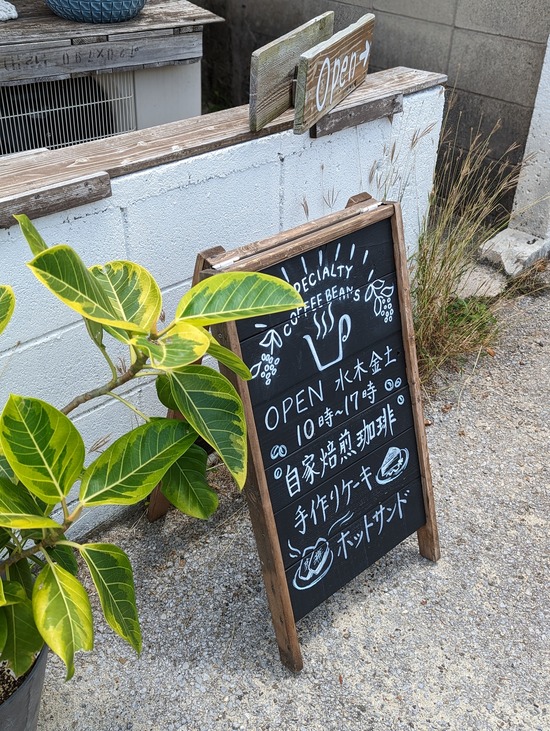 Open→
SPECIALTY
COFFEE BEANS
OPEN 水木金土
10時~17時
自家焙煎珈琲
手作りケーキ
ホットサンド